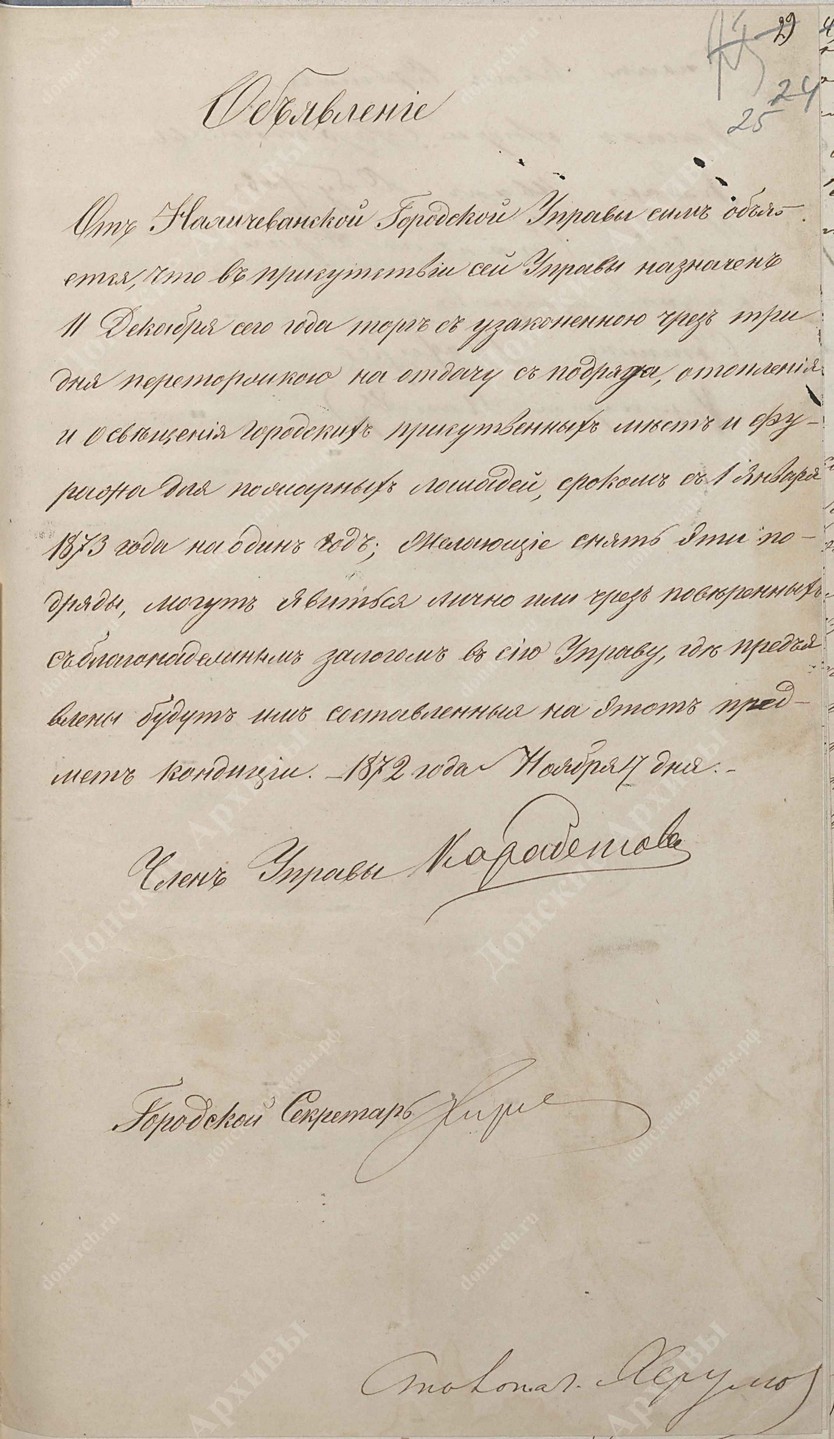 29
24
25
Объявленіе
Отъ Нахичеванской Городской Управы симъ объя-
ется, что въ присутствіи сей Управы назначенъ
11 Декабря сего года торгъ съ узаконенною чрезъ три
дня переторжкою на отдачу съ подряда, отопленія
и освѣщенія городскихъ присутственныхъ мѣстъ и фу-
ража для пожарныхъ лошадей, срокомъ съ 1 Января
1873 года на одинъ годъ; Желающіе снять эти по-
дряды, могутъ явиться лично или чрезъ повѣренныхъ
съ благонадежнымъ залогомъ въ сію Управу, гдѣ предъя
влены будутъ имъ составленныя на этотъ пред-
метъ кондиціи. - 1872 года Ноября 17 дня. -
Членъ Управы Карабетовъ
Городской Секретарь